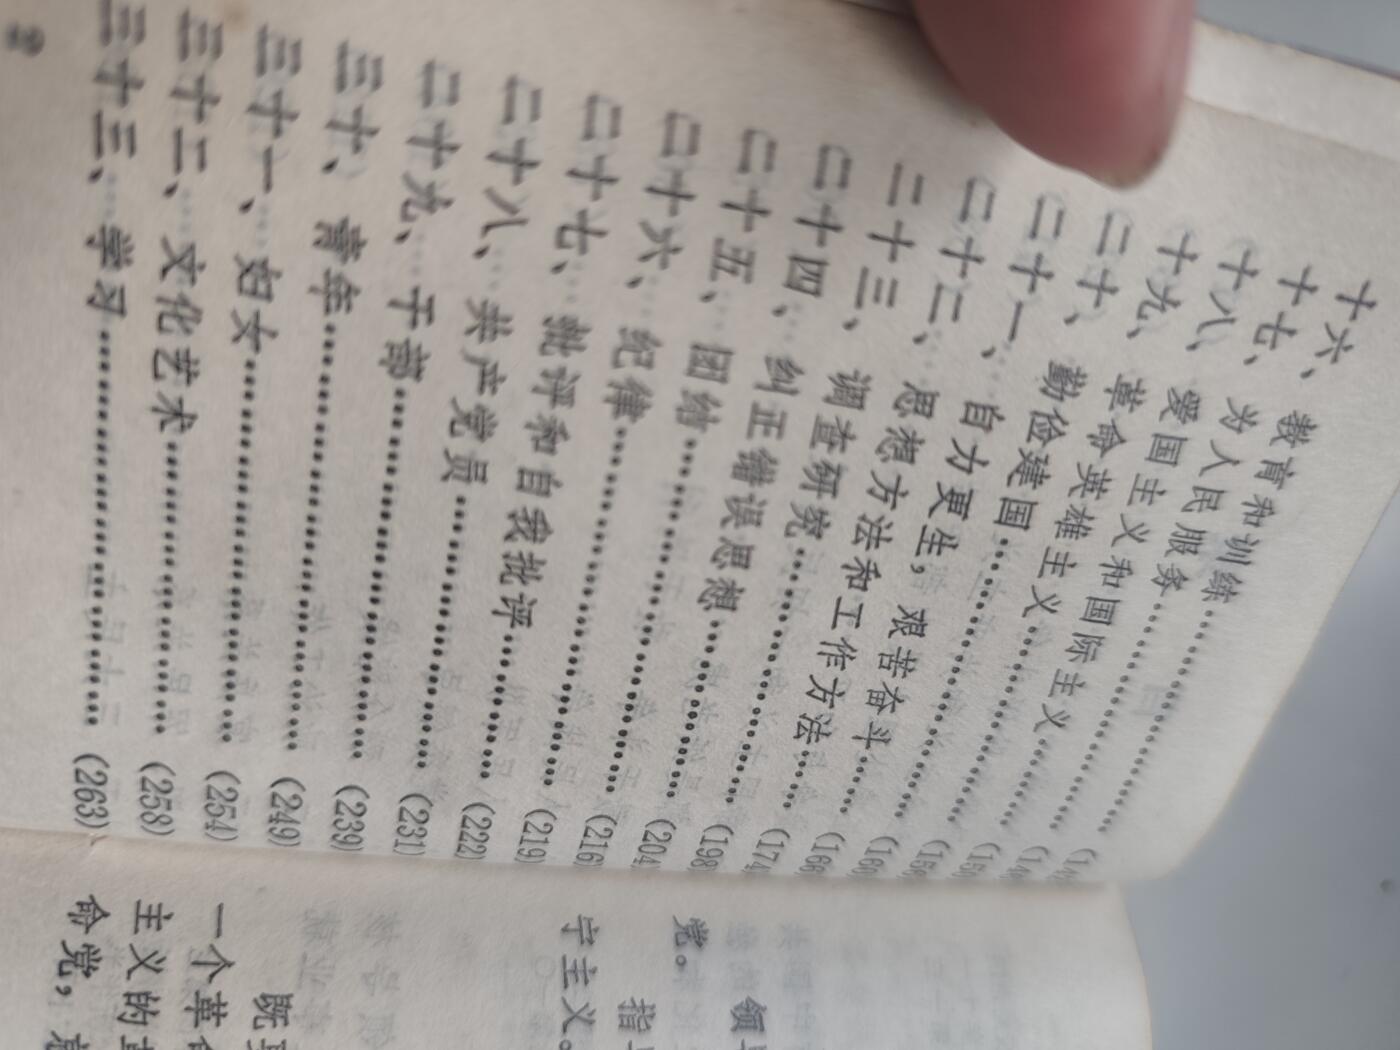 十六、教育和训练……
十七、为人民服务……
十八、爱国主义和国际主义……
十九、革命英雄主义……
二十、勤俭建国……
二十一、自力更生，艰苦奋斗……
二十二、思想方法和工作方法……
二十三、调查研究……(174
二十四、纠正错误思想……(198
二十五、团结……(204
二十六、纪律……(216
二十七、批评和自我批评……(219)
二十八、共产党员……(222)
二十九、干部……(231)
三十、青年……(239)
三十一、妇女……(249)
三十二、文化艺术……(254)
三十三、学习……(263)
2
领
党。
指
字主义。
既
一个革命
主义的
命党，